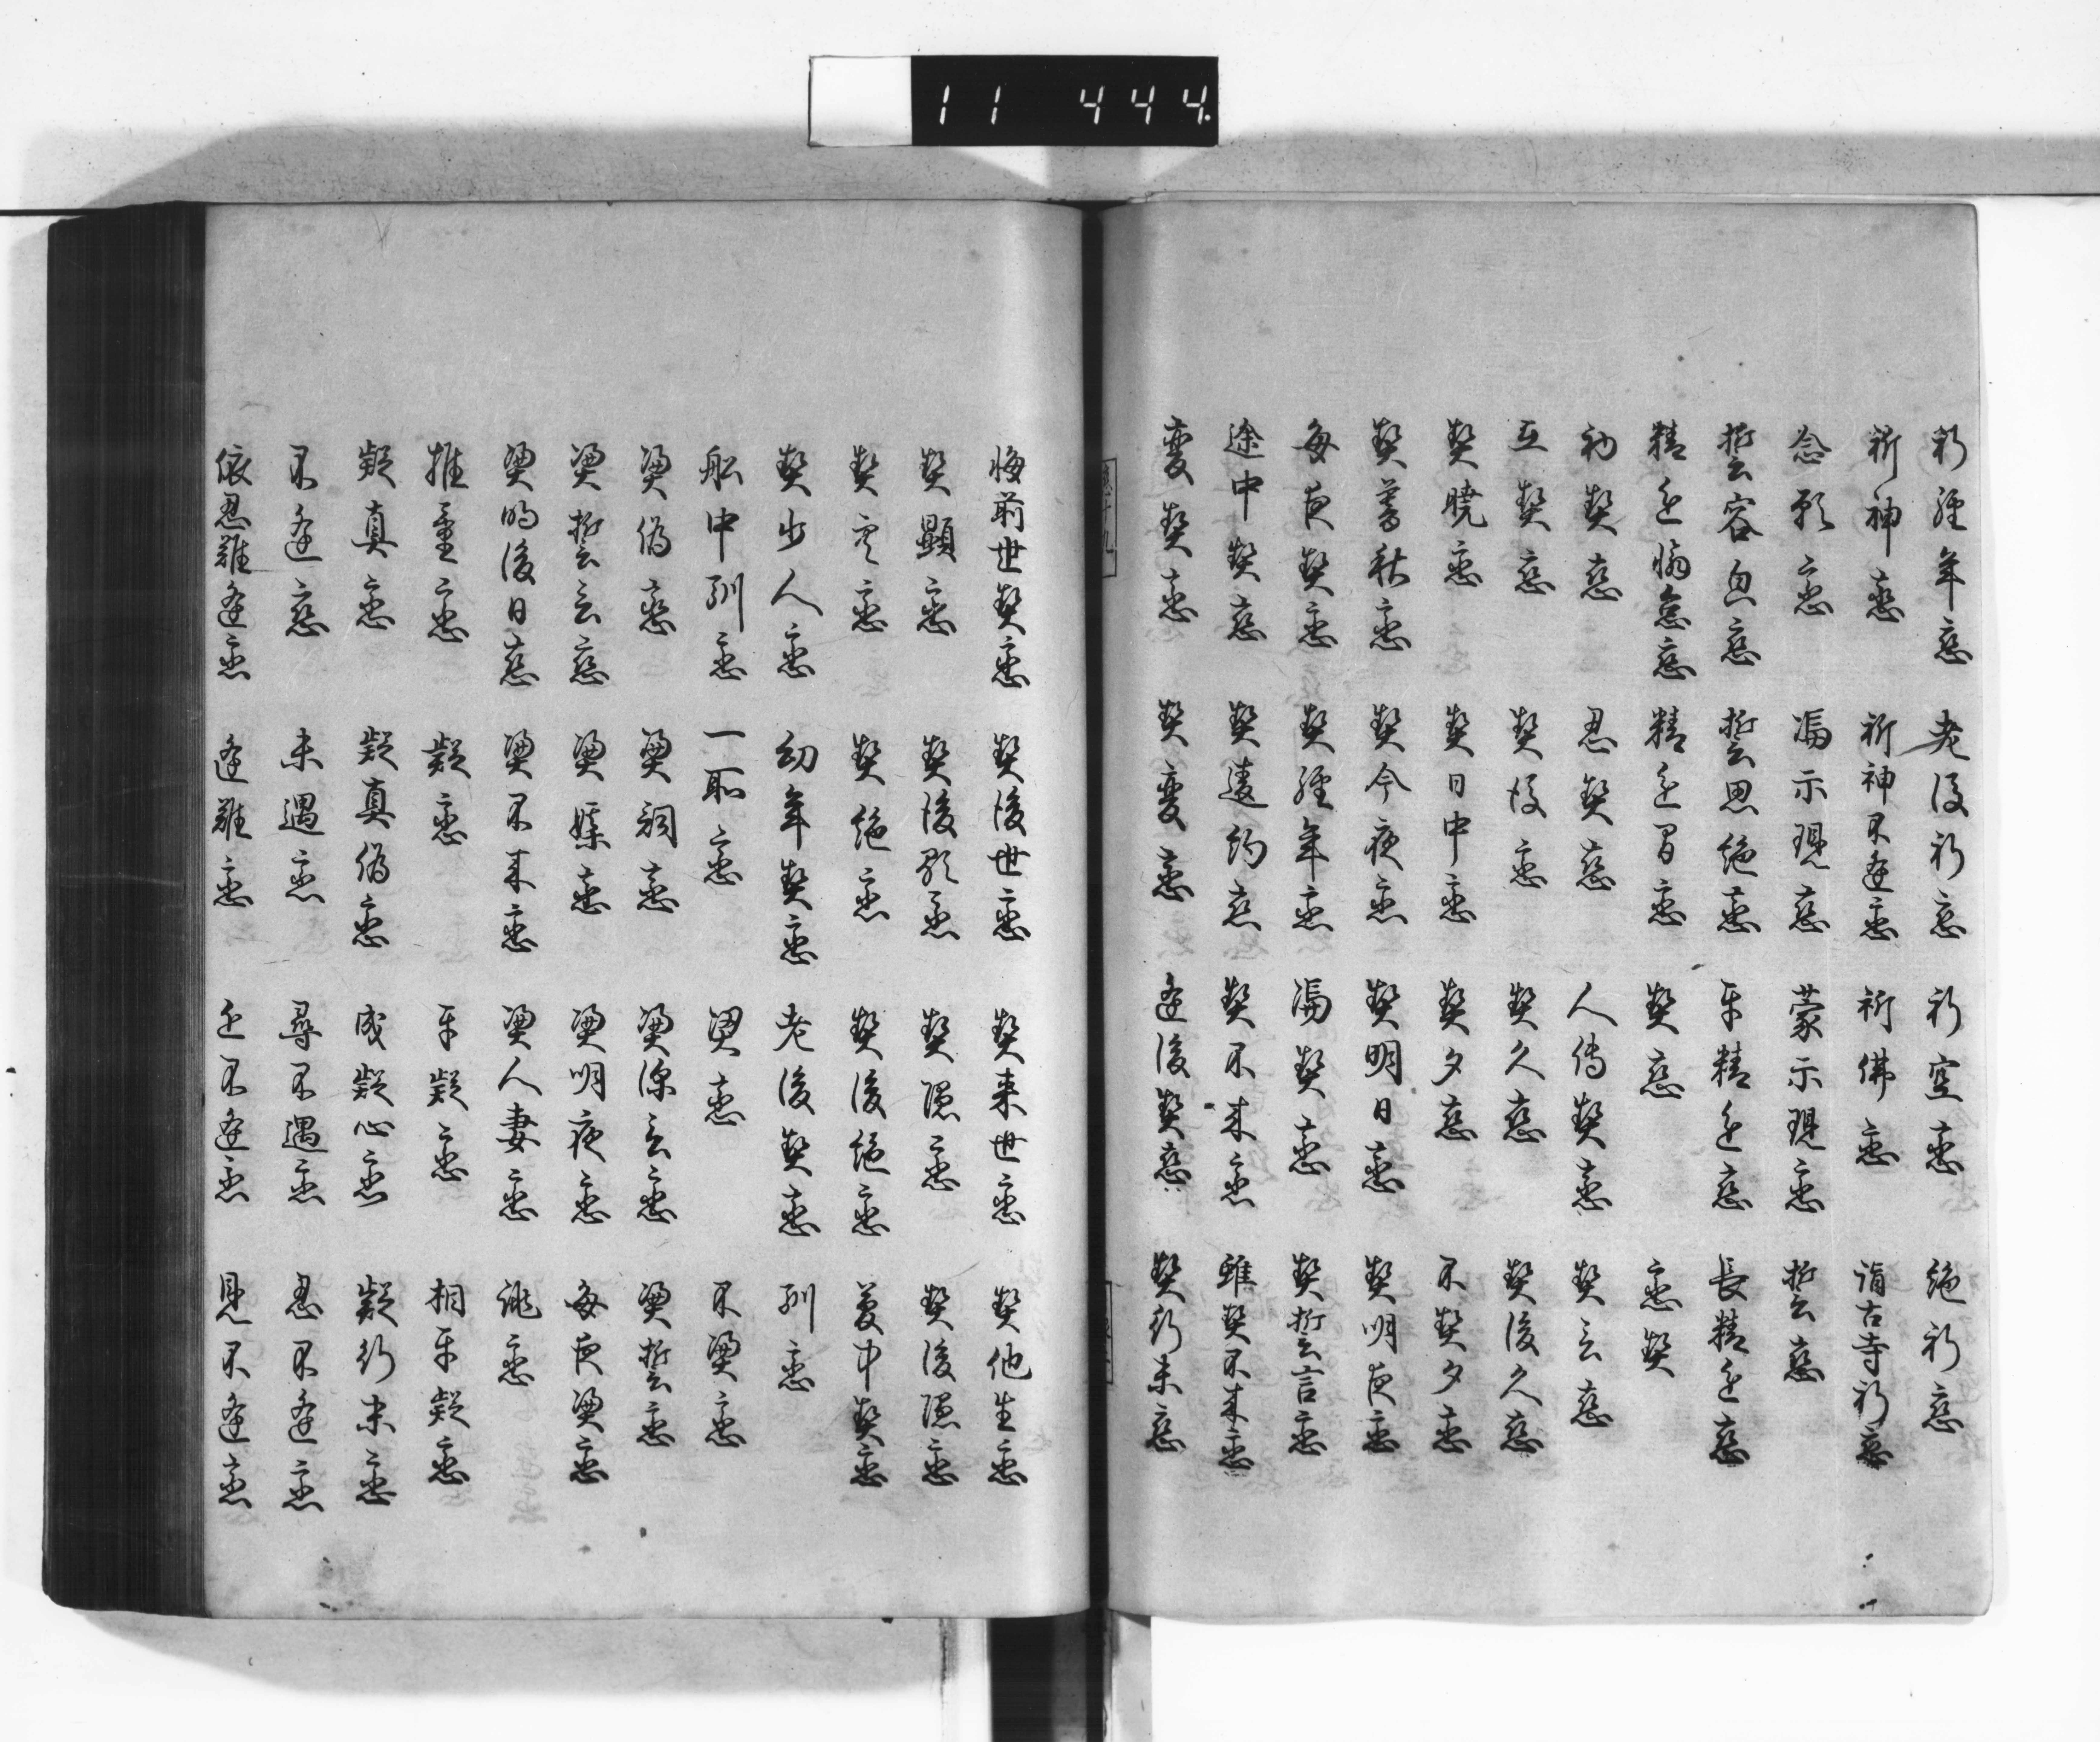 11 444.
祈経年恋 老後祈恋 祈空恋 絶祈恋
祈神恋 祈神不逢恋 祈佛恋 詣古寺祈恋
念願恋 馮示現恋 蒙示現恋 誓恋
誓容自恋 誓思絶恋 互精進恋 長精進恋
精進憐恋 精進間恋 契恋 恋契
初契恋 忍契恋 人傳契恋 契言恋
互契恋 契後恋 契久恋 契後久恋
契暁恋 契日中恋 契夕恋 不契夕恋
契暮秋恋 契今夜恋 契明日恋 契明夜恋
毎夜契恋 契経年恋 馮契恋 契誓言恋
途中契恋 契遠約恋 契不来恋 雖契不来恋
変契恋 契変恋 逢後契恋 契行末恋
悔前世契恋 契後世恋 契来世恋 契他生恋
契顕恋 契後顕恋 契隠恋 契後隠恋
契空恋 契絶恋 契後絶恋 夢中契恋
契少人恋 幼年契恋 老後契恋 馴恋
船中馴恋 恥恋 契恋 不契恋
契偽恋 契詞恋 契深言恋 契誓恋
契誓言恋 契媒恋 契明夜恋 毎夜契恋
契明後日恋 契不来恋 契人妻恋 誂恋
推量恋 疑恋 互疑恋 相互疑恋
疑真恋 疑真偽恋 成疑心恋 疑行末恋
不逢恋 未遇恋 尋不遇恋 忍不逢恋
依忍難逢恋 逢難恋 近不逢恋 見不逢恋